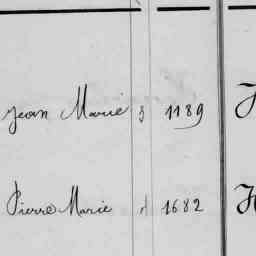 Jean Marie 3 1189
Pierre Marie 1682